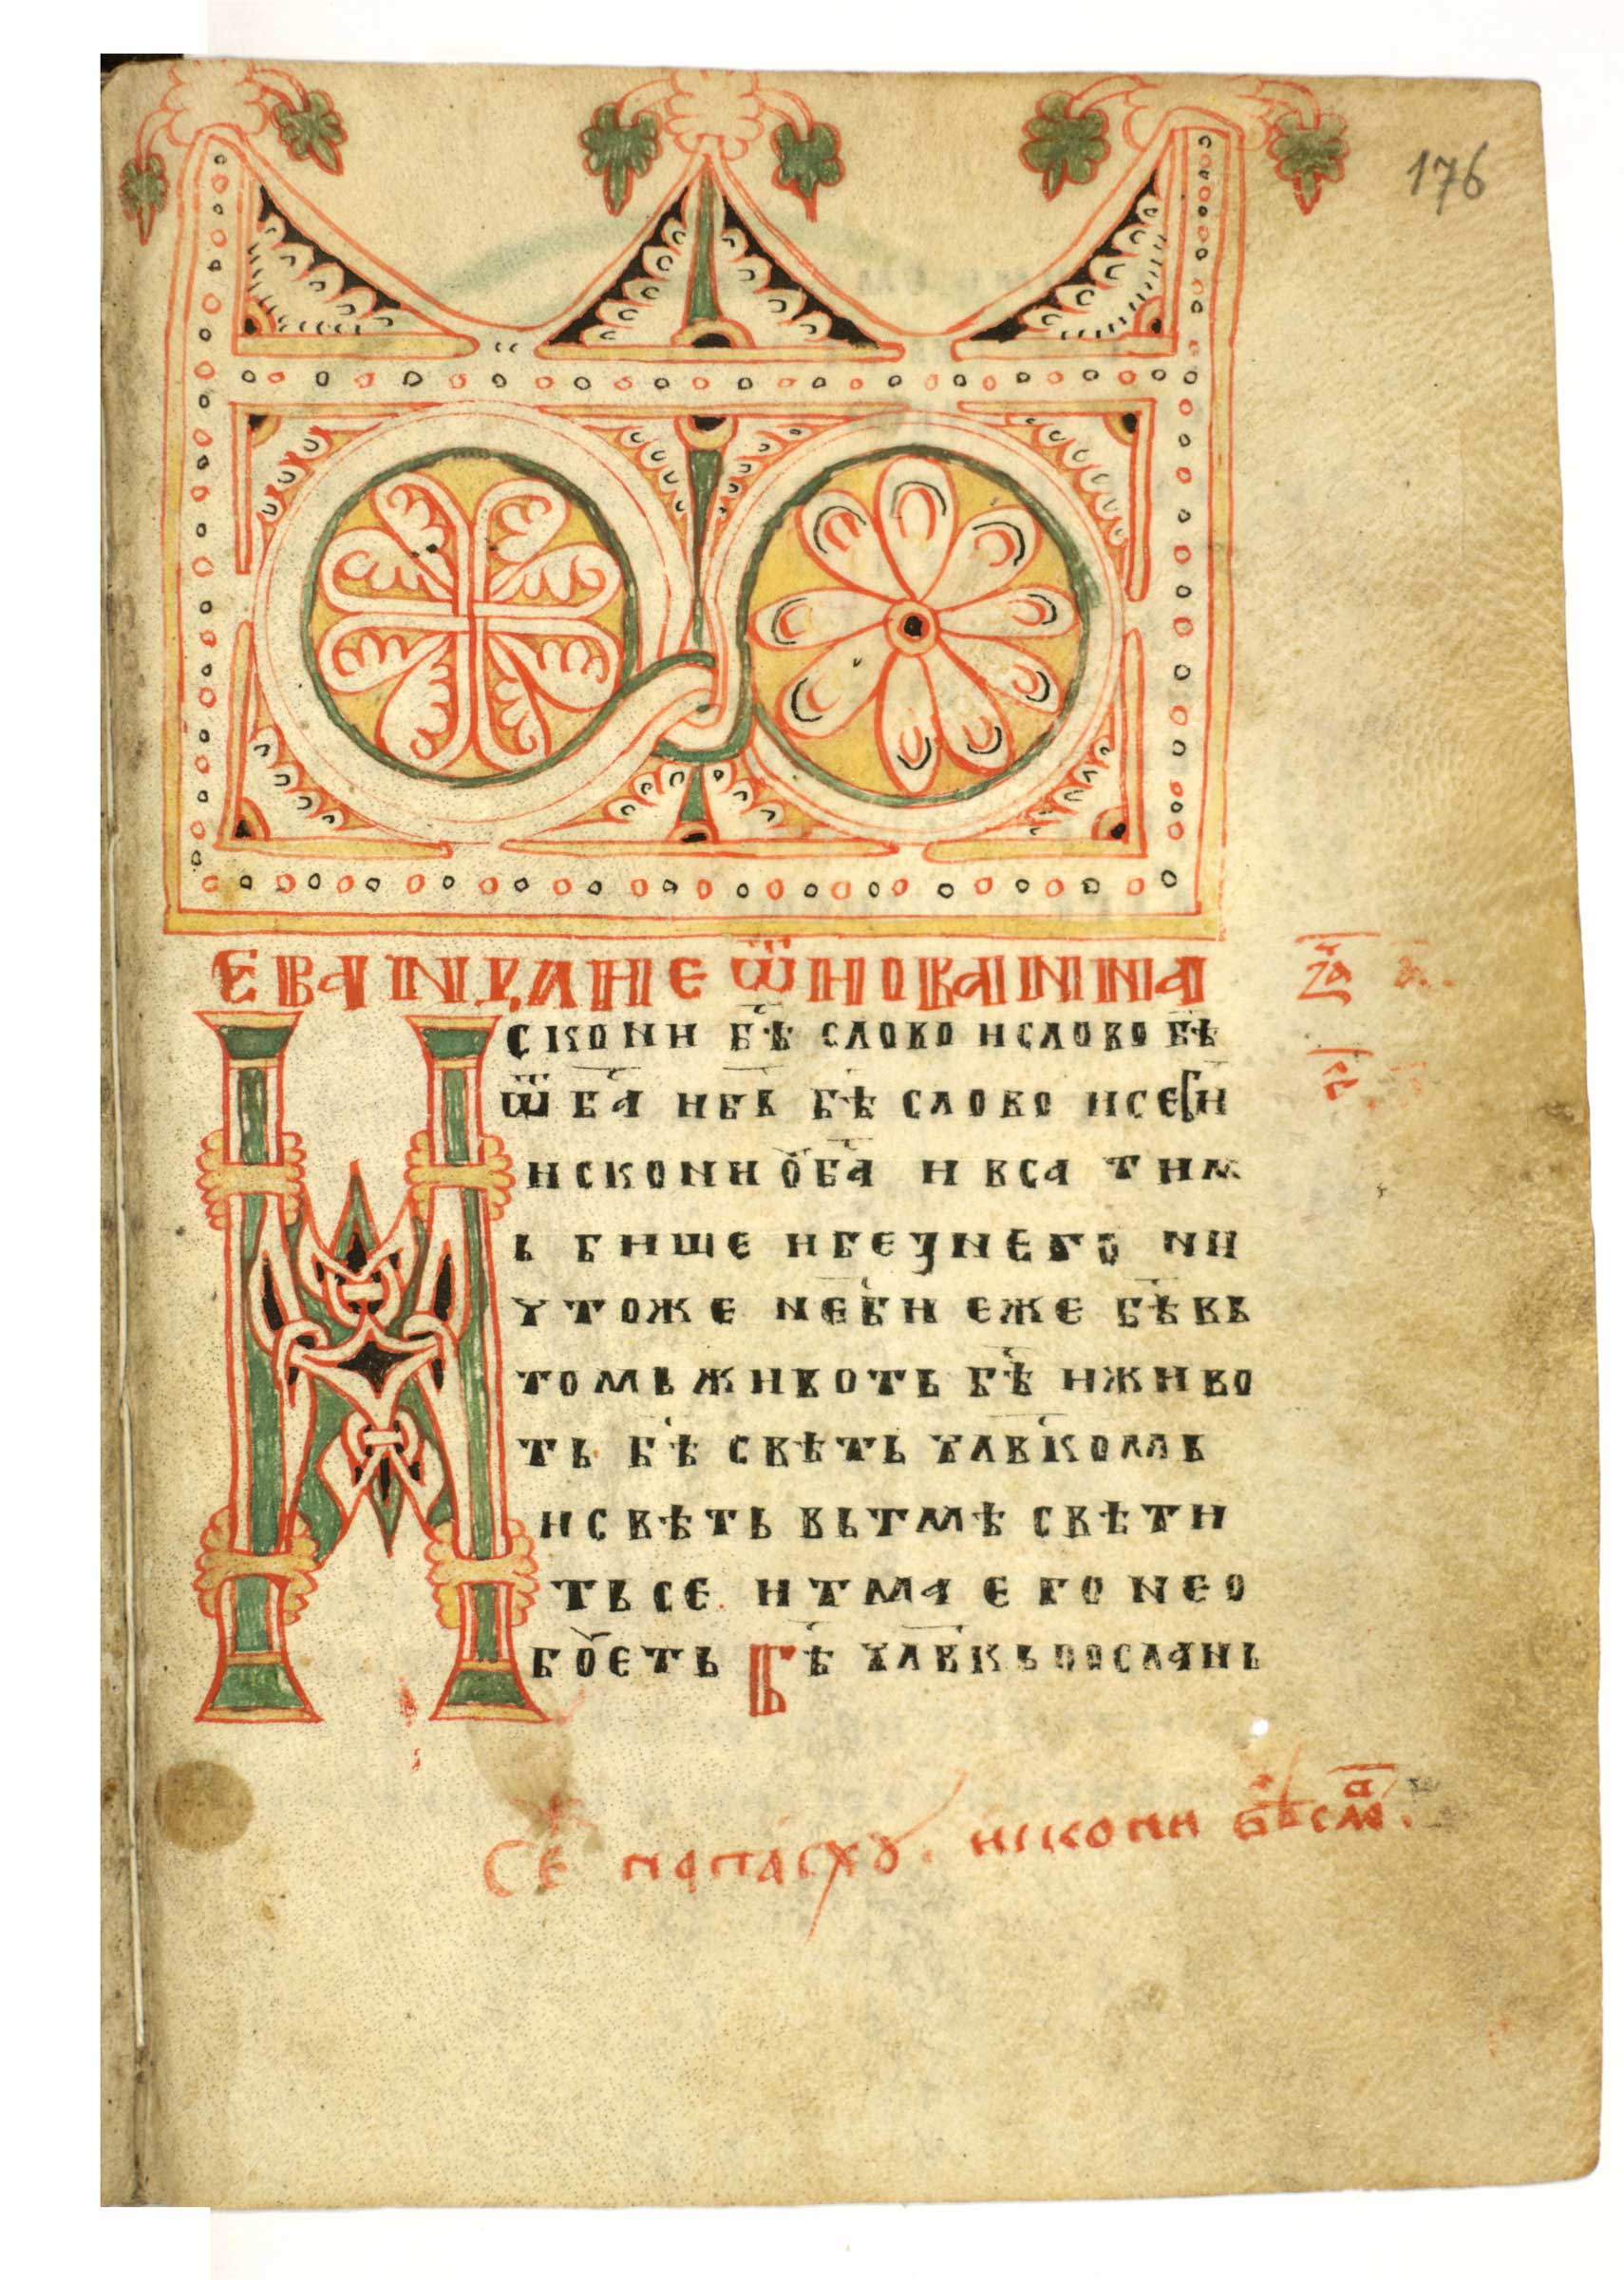 176
ЕВАНЬГЛИЕ Ѿ ИОВАННА
И
СКОНИ БѢ СЛОВО И СЛОВО БѢ
Ѿ БА И БЬ БѢ СЛОВО И СЕ БИ
ИСКОНИ Ѹ БА И ВСА ТИМ
Ь БИШЕ И БЕЗ НЕГО НИ
ЧТОЖЕ НЕ БИ ЕЖЕ БѢ ВЬ
ТОМЬ ЖИВОТЬ БѢ И ЖИВО
ТЬ БѢ СВѢТЬ ЧЛВКОМЬ
И СВѢТЬ ВЬ ТМѢ СВѢТИ
ТЬ СЕ И ТМА ЕГО НЕ О
БОЕТЬ БѢ ЧЛВКЬ ПОСЛАНЬ
СЕ НА ПАСХꙋ. ИСКОНИ БѢ СЛО.